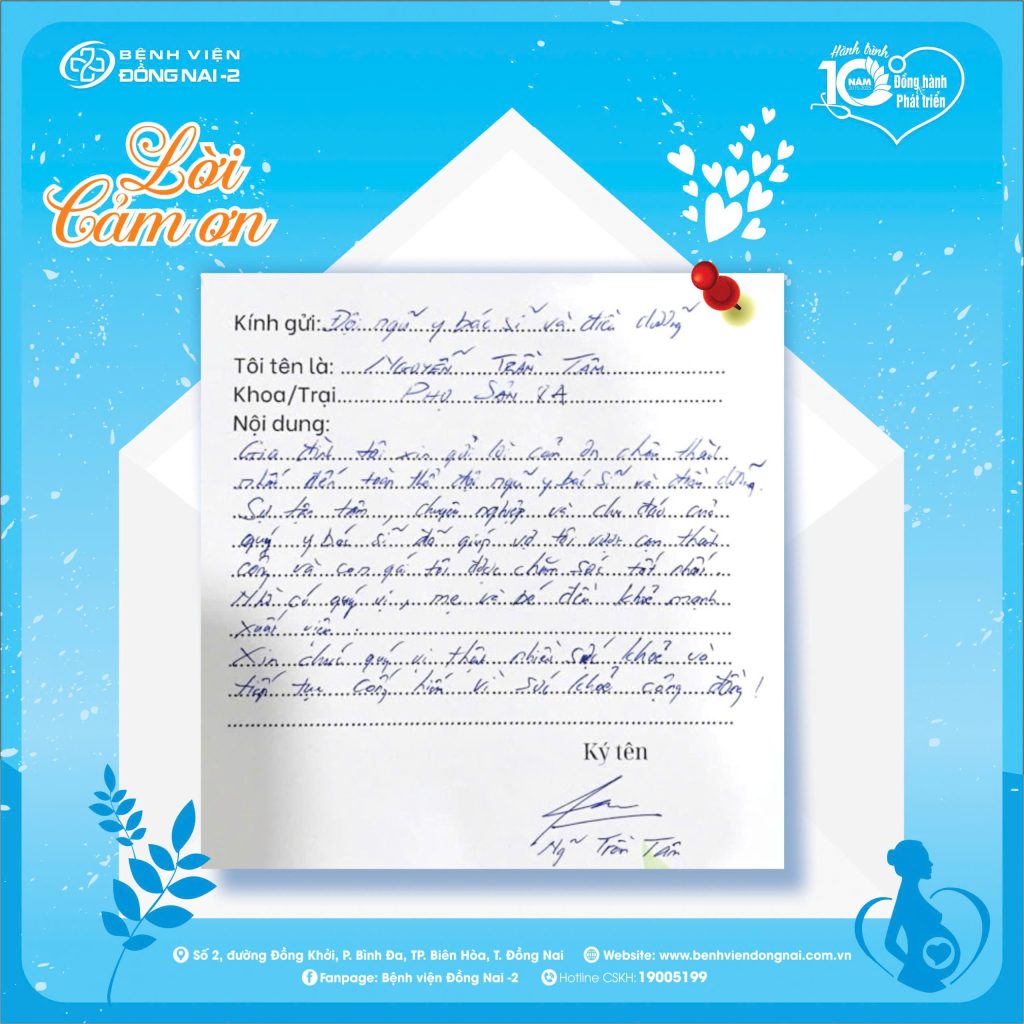 BỆNH VIỆN
ĐỒNG NAI -2
Hành trình
10 NĂM
2015-2025
Đồng hành
Phát triển
Lời
Cảm ơn
Kính gửi: Đội ngũ y bác sĩ và điều dưỡng
Tôi tên là: NGUYỄN TRẦN TÂM
Khoa/Trại PHỤ SẢN 8A
Nội dung:
Gia đình tôi xin gửi lời cảm ơn chân thành
nhất đến toàn thể đội ngũ y bác sĩ và điều dưỡng.
Sự tận tâm, chuyên nghiệp và chu đáo của
quý y bác sĩ đã giúp vợ tôi vượt cạn thành
công và con gái tôi được chăm sóc tốt nhất.
Nhờ có quý vị, mẹ và bé đều khoẻ mạnh
xuất viện.
Xin chúc quý vị thật nhiều sức khoẻ và
tiếp tục cống hiến vì sức khoẻ cộng đồng!
Ký tên
Ng Trần Tâm
Số 2, đường Đồng Khởi, P. Bình Đa, TP. Biên Hòa, T. Đồng Nai Website: www.benhviendongnai.com.vn
Fanpage: Bệnh viện Đồng Nai -2 Hotline CSKH: 19005199